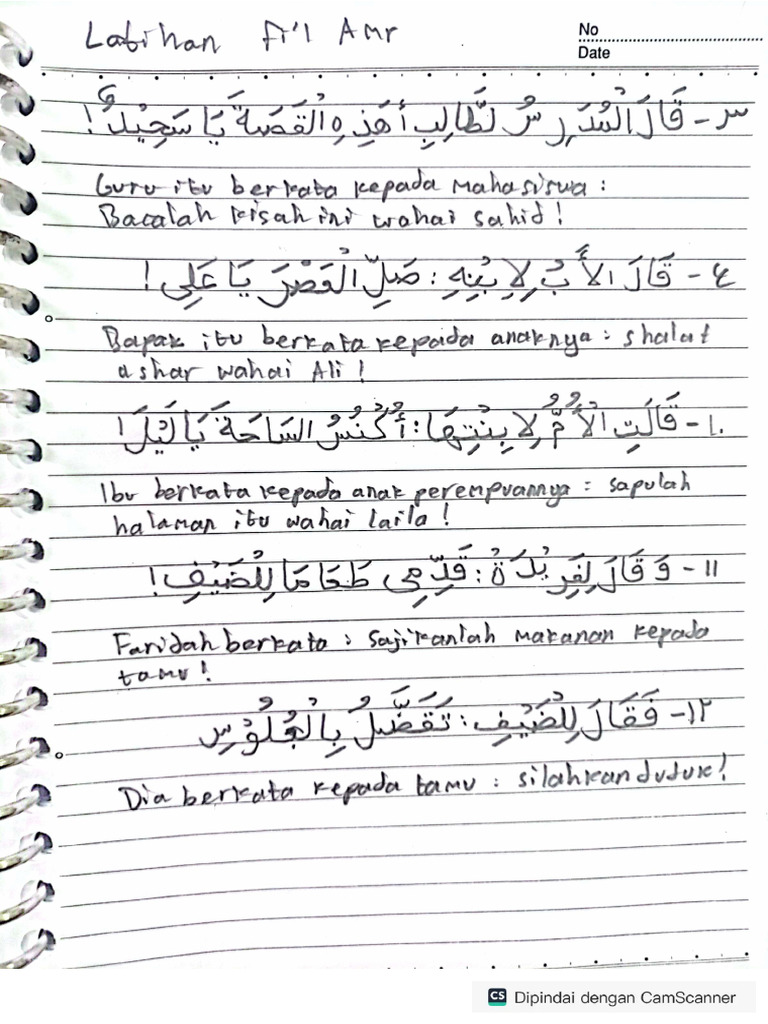 Latihan Fi'l Amr
No
Date
٣- قَالَ الْمُدَرِسُ لَّطَّالِبِ أ هَذِهِ الْقَصَةَ يَا سَحِيْدُ!
Guru itu berkata kepada mahasiswa :
Bacalah kisah ini wahai sahid !
٤- قَالَ الأَبُ لِابْنِهِ : صَلِّ الْعَصْرَ يَا عَلِى !
Bapak itu berkata kepada anaknya : shalat
ashar wahai Ali !
١٠- قَالَتِ الْأُمُّ لِابِنْتِهَا : أُكْنُسُ السَاحَةَ يَا لَيْلَ!
Ibu berkata kepada anak perempuannya : sapulah
halaman itu wahai laila !
١١- وَ قَالَ لِفَرِيْدَةُ : قَدِّمِى طَعَامَا لِلْضَيْفِ!
Faridah berkata : sajikanlah makanan kepada
tamu !
١٢- فَقَالَ لِلْضَيْفِ : تَفَضَّلُ بِالْجُلُوْسِ
Dia berkata kepada tamu : silahkan duduk!
CS Dipindai dengan CamScanner